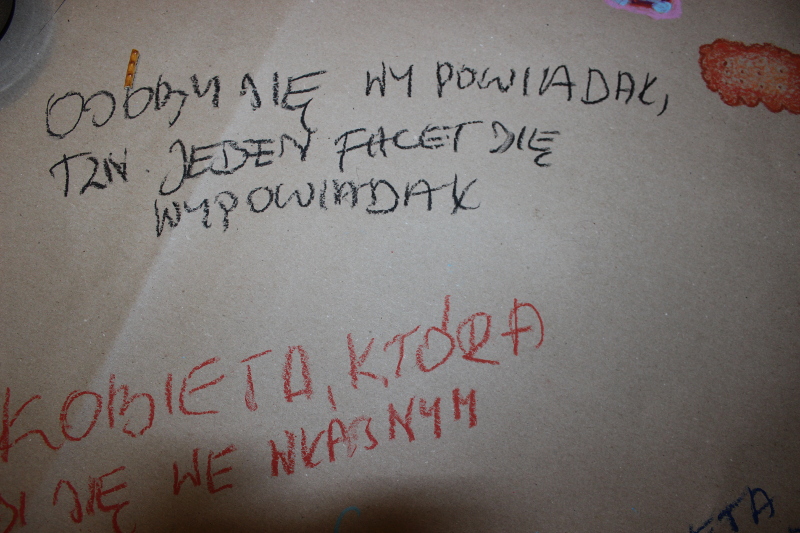 OSOBY SIĘ WYPOWIADAŁ,
TZN. JEDEN FACET SIĘ
WYPOWIADAŁ
KOBIETA, KTÓRA
SIĘ WE WŁASNYM
ETA